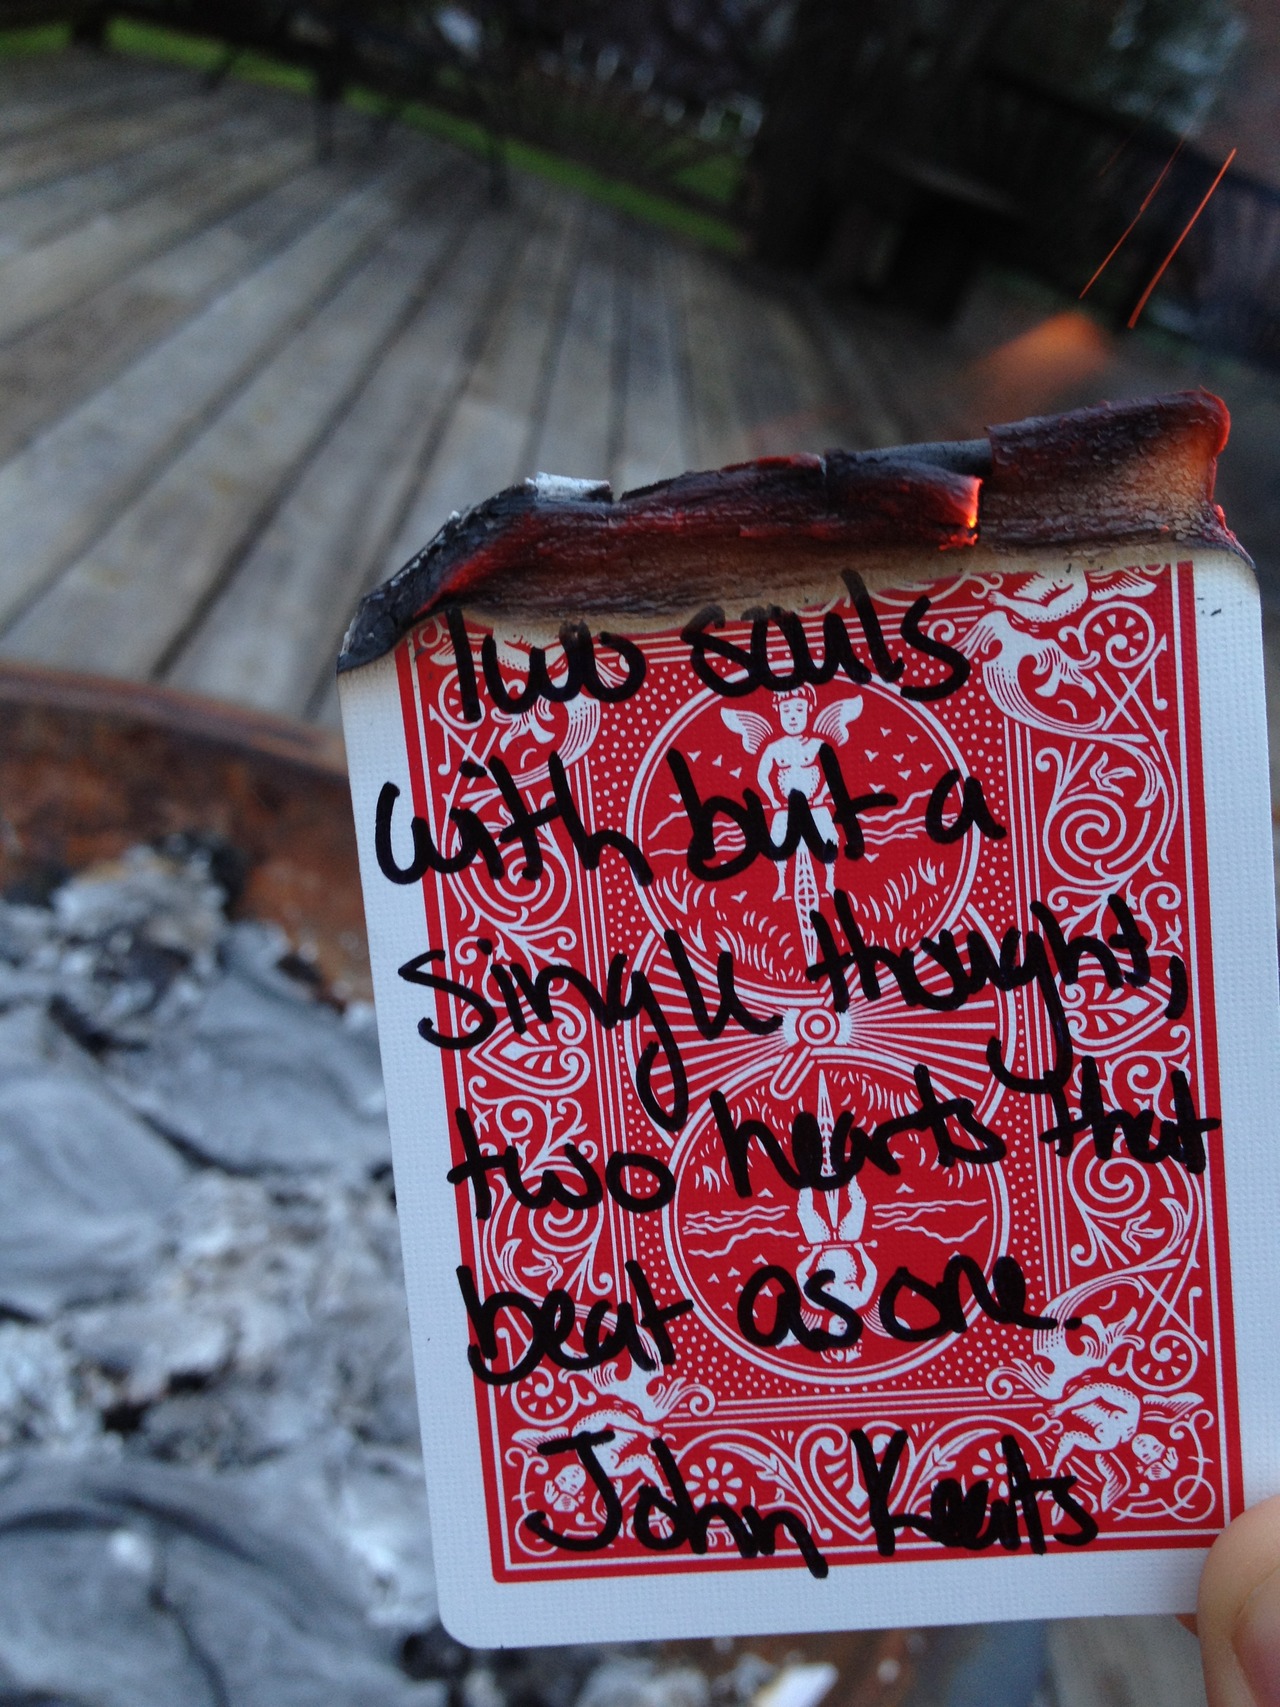 Two souls
with but a
single thought,
two hearts that
beat as one.
John Keats